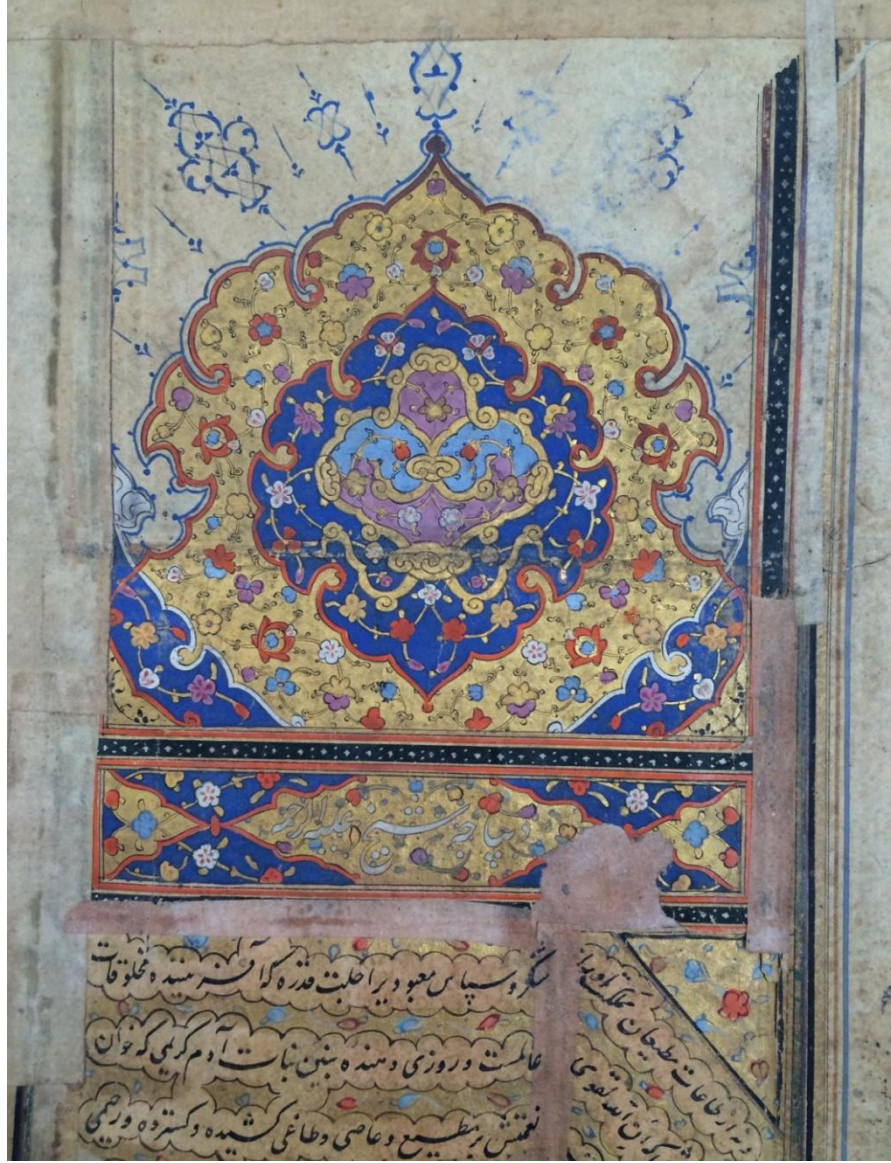 دیباجه شیخ علیه الرحمه
شکر و سپاس معبودیرا جلت قدره که آفریننده مخلوقات
عالمست و روزی دهنده بنین نبات آدم کریمی که خوان
نعمتش بر مطیع و عاصی و طاغی کشیده و کسترده و رحیمی
طاعات مطیعان